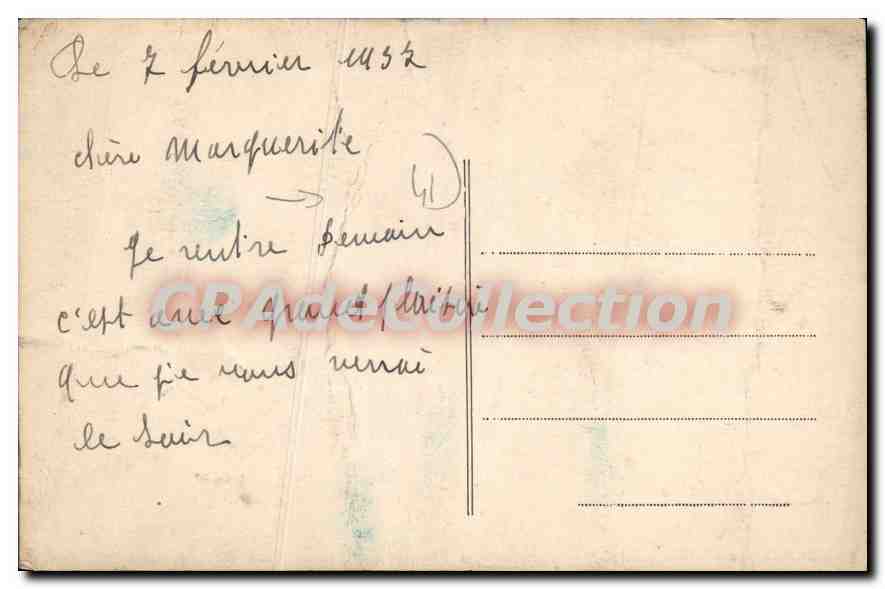 Le 7 février 1937
chère Marguerite
41
Je rentre Demain
c'est avec grand plaisir
CPAdeCollection
que je vous verrai
le Soir